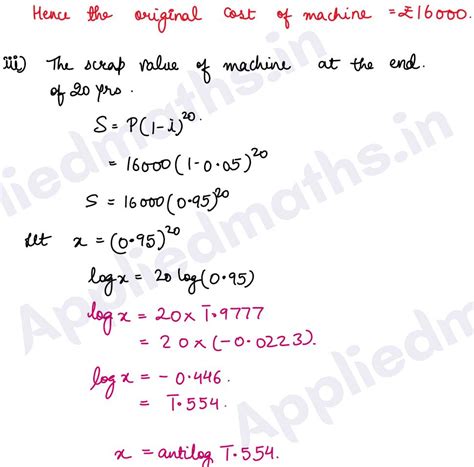 Hence the original cost of machine = ₹16000.
iii) The scrap value of machine at the end.
of 20 yrs.
S = P(1-i)²⁰.
= 16000(1-0.05)²⁰
S = 16000(0.95)²⁰
Let x = (0.95)²⁰
log x = 20 log(0.95)
log x = 20 × 1̅.9777
= 20 × (-0.0223).
log x = -0.446.
= 1̅.554.
x = antilog 1̅.554.
Appliedmaths.in
Appliedmaths.in
Appliedm